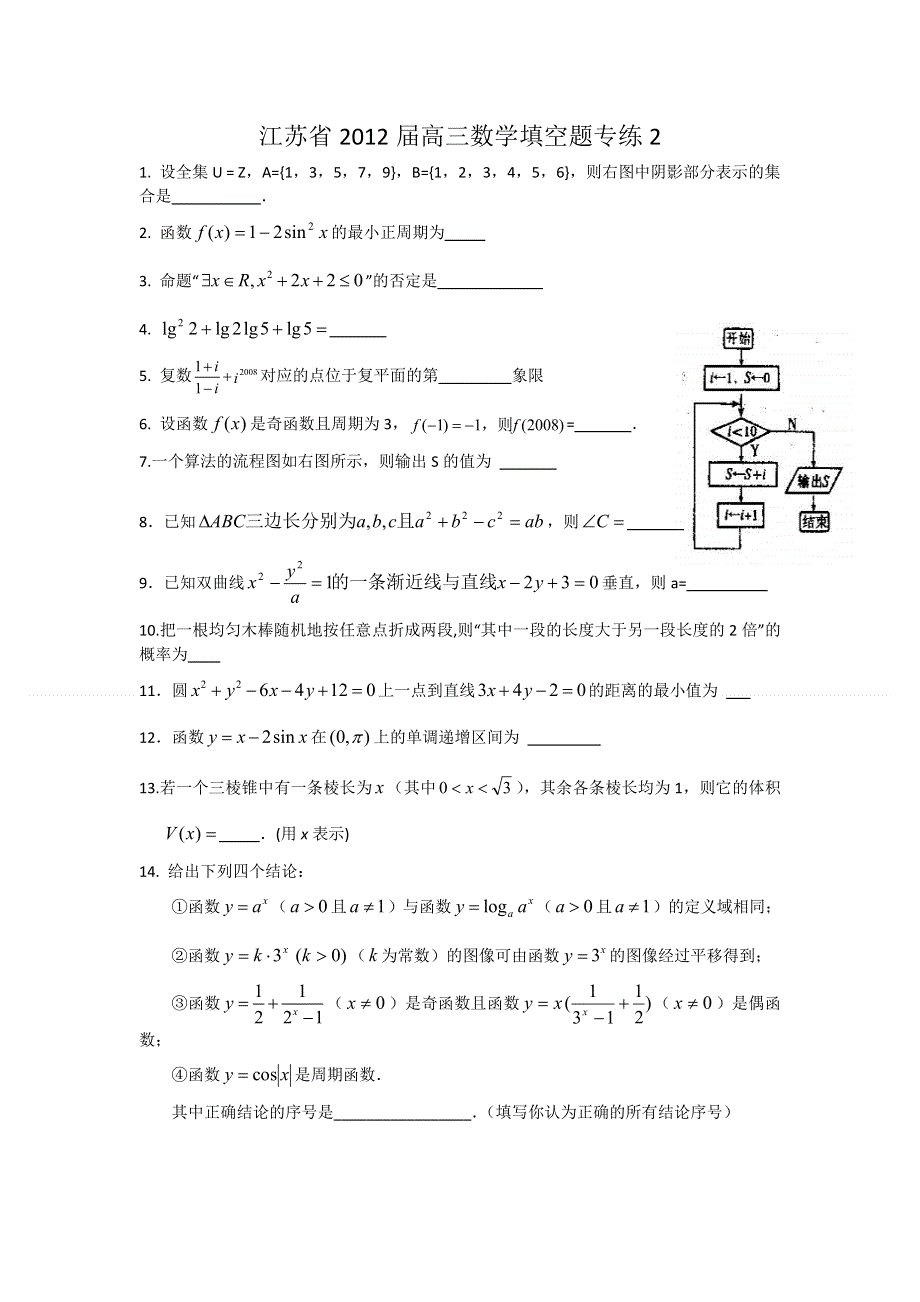 江苏省 2012 届高三数学填空题专练 2
1. 设全集 U = Z，A={1，3，5，7，9}，B={1，2，3，4，5，6}，则右图中阴影部分表示的集
合是___________．
2. 函数 f(x)=1−2sin² x 的最小正周期为_____
3. 命题“∃x∈R, x²+2x+2≤0”的否定是_____________
4. lg² 2+lg2lg5+lg5=_______
5. 复数 (1+i)/(1−i)+i²⁰⁰⁸ 对应的点位于复平面的第_________象限
6. 设函数 f(x) 是奇函数且周期为 3，f(−1)=−1，则f(2008)=_______．
7.一个算法的流程图如右图所示，则输出 S 的值为 _______
开始
i←1, S←0
i<10
N
Y
S←S+i
输出S
i←i+1
结束
8．已知 ΔABC三边长分别为a,b,c且a²+b²−c²=ab，则∠C=_______
9．已知双曲线 x²−y²/a=1的一条渐近线与直线x−2y+3=0 垂直，则 a=__________
10.把一根均匀木棒随机地按任意点折成两段,则“其中一段的长度大于另一段长度的 2 倍”的
概率为____
11．圆 x²+y²−6x−4y+12=0 上一点到直线 3x+4y−2=0 的距离的最小值为 ___
12．函数 y=x−2sin x 在 (0,π) 上的单调递增区间为 _________
13.若一个三棱锥中有一条棱长为 x（其中 0<x<√3），其余各条棱长均为 1，则它的体积
V(x)=_____．(用 x 表示)
14. 给出下列四个结论：
①函数 y=aˣ（a>0 且 a≠1）与函数 y=logₐ aˣ（a>0 且 a≠1）的定义域相同；
②函数 y=k·3ˣ (k>0)（k 为常数）的图像可由函数 y=3ˣ 的图像经过平移得到；
③函数 y=1/2+1/(2ˣ−1)（x≠0）是奇函数且函数 y=x(1/(3ˣ−1)+1/2)（x≠0）是偶函
数；
④函数 y=cos|x| 是周期函数．
其中正确结论的序号是_________________．（填写你认为正确的所有结论序号）